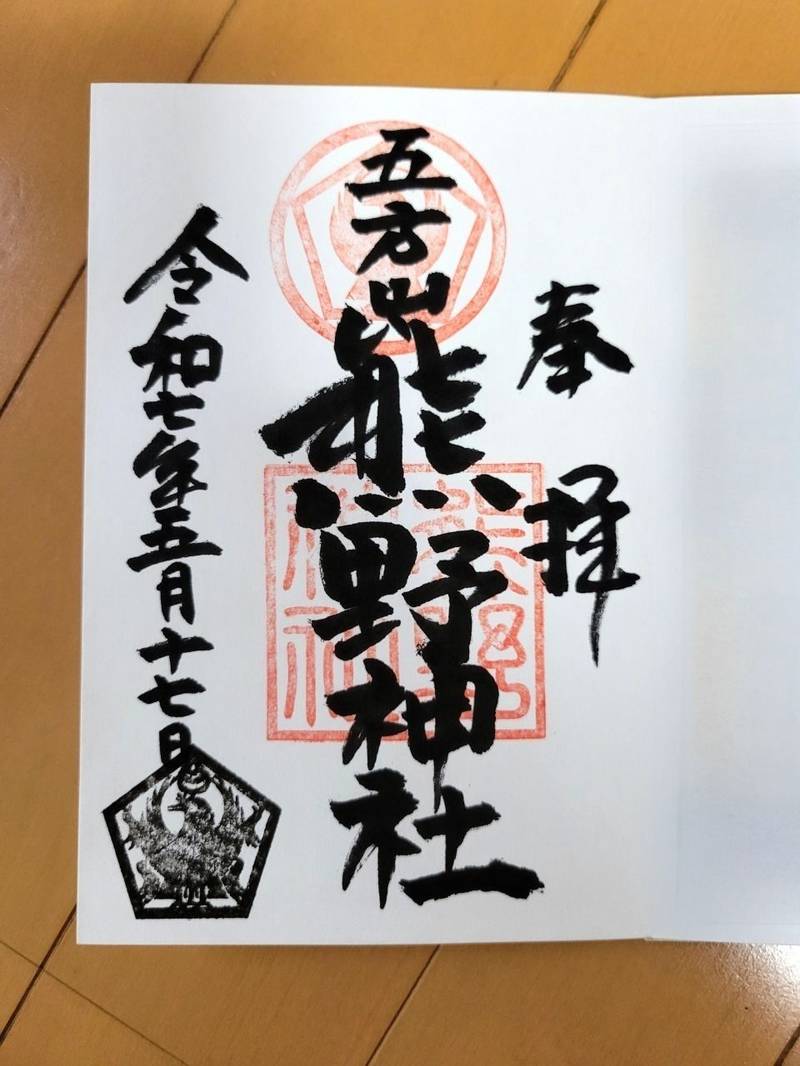 奉拝
五方山熊野神社
令和七年五月十七日
熊野神社